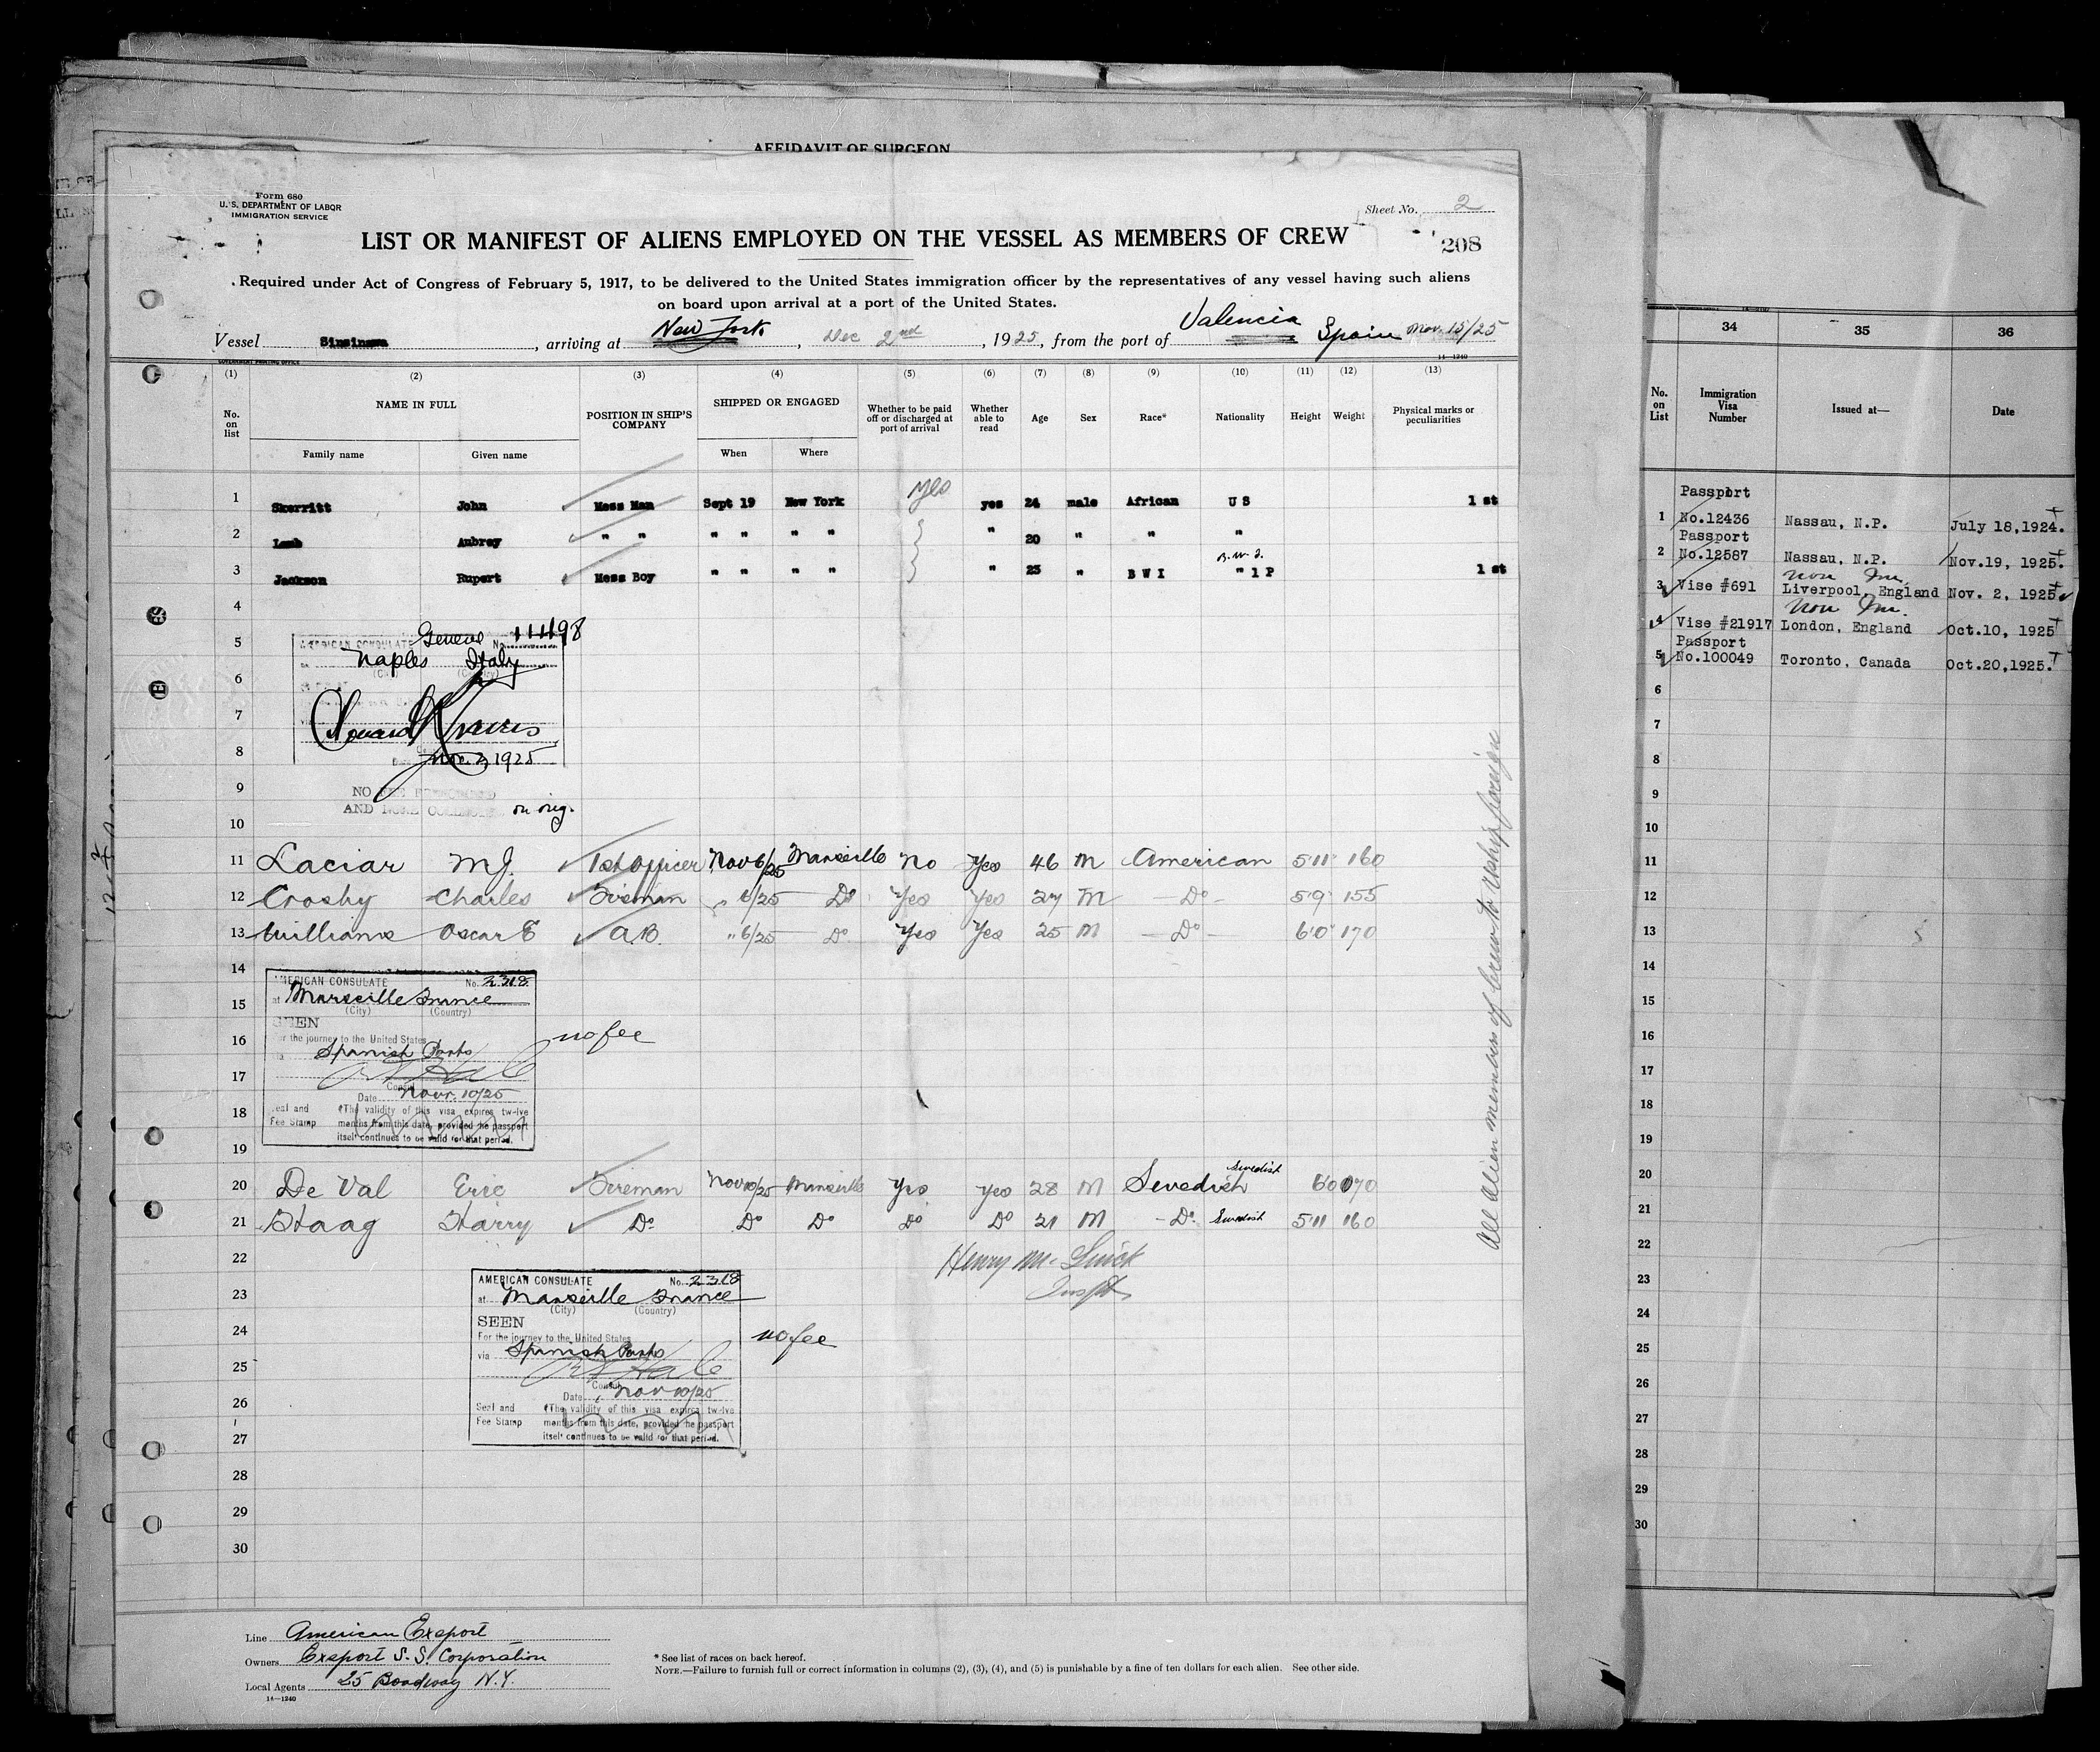 AFFIDAVIT OF SURGEON
Form 680
U. S. DEPARTMENT OF LABOR
IMMIGRATION SERVICE
Sheet No. 2
LIST OR MANIFEST OF ALIENS EMPLOYED ON THE VESSEL AS MEMBERS OF CREW
208
Required under Act of Congress of February 5, 1917, to be delivered to the United States immigration officer by the representatives of any vessel having such aliens
on board upon arrival at a port of the United States.
Vessel Sinsinawa, arriving at New York, Dec 2nd, 1925, from the port of Valencia Spain Nov. 15/25
GOVERNMENT PRINTING OFFICE
14—1240
(1) (2) (3) (4) (5) (6) (7) (8) (9) (10) (11) (12) (13)
No. on list NAME IN FULL POSITION IN SHIP'S COMPANY SHIPPED OR ENGAGED Whether to be paid off or discharged at port of arrival Whether able to read Age Sex Race* Nationality Height Weight Physical marks or peculiarities
Family name Given name When Where
1 Skerritt John Mess Man Sept 19 New York yes yes 24 male African U S 1 st
2 Lamb Aubrey " " " " " " " 20 " " "
B.W.I.
3 Jackson Rupert Mess Boy " " " " " 23 " B W I " 1 P 1 st
4
5
6
7
8
9
10
AMERICAN CONSULATE General No. 11498
Naples Italy
Nov. 2, 1925
NO FEE PRESCRIBED
AND NONE COLLECTED on orig.
11 Laciar M J. 1st Officer Nov 6/25 Marseille No Yes 46 M American 5'11" 160
12 Crosby Charles Fireman " 6/25 Do Yes Yes 27 M — Do — 5'9" 155
13 Williams Oscar E A.B. " 6/25 Do Yes Yes 25 M — Do — 6'0" 170
14
15
16
17
18
19
AMERICAN CONSULATE No. 2318
at Marseille France
(City) (Country)
SEEN
For the journey to the United States
via Spanish Ports
no fee
Consul
Date Nov. 10/25
Seal and Fee Stamp
(The validity of this visa expires twelve
months from this date, provided the passport
itself continues to be valid for that period.
20 De Val Eric Fireman Nov 10/25 Marseille Yes Yes 28 M Swedish Swedish 6'0 170
21 Staag Harry Do Do Do Do Do 21 M — Do. Swedish 5'11 160
22
23
24
25
26
27
28
29
30
Insptr
AMERICAN CONSULATE No. 2318
at Marseille France
(City) (Country)
SEEN
For the journey to the United States
via Spanish Ports
no fee
Consul
Date Nov 10/25
Seal and Fee Stamp
(The validity of this visa expires twelve
months from this date, provided the passport
itself continues to be valid for that period.
All Alien members of Crew to reship foreign
Line American Export
Owners Export S. S. Corporation
Local Agents 25 Broadway N.Y.
14—1240
* See list of races on back hereof.
NOTE.—Failure to furnish full or correct information in columns (2), (3), (4), and (5) is punishable by a fine of ten dollars for each alien. See other side.
34 35 36
No. on List Immigration Visa Number Issued at— Date
1 Passport No.12436 Nassau, N.P. July 18,1924.
2 Passport No.12587 Nassau, N.P. Nov.19, 1925.
non Im.
3 Vise #691 Liverpool, England Nov. 2, 1925
Non Im.
4 Vise #21917 London, England Oct.10, 1925
5 Passport No.100049 Toronto, Canada Oct.20,1925.
6
7
8
9
10
11
12
13
14
15
16
17
18
19
20
21
22
23
24
25
26
27
28
29
30